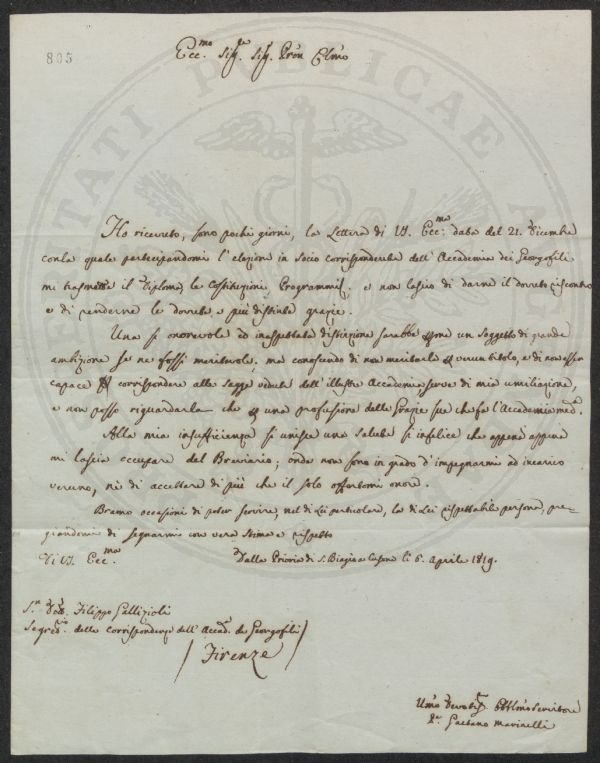 805
Ecc.mo Sig.re Sig. Pròn Clmo
Ho ricevuto, sono pochi giorni, la Lettera di V. Ecc.ma data del 21. Dicembre
con la quale partecipandomi l'elezione in Socio corrispondente dell'Accademia dei Georgofili
mi trasmette il Diploma, le Costituzioni, Programmi, e non lascio di darne il dovuto riscontro
e di renderne le dovute, e più distinte grazie.
Una sì onorevole ed inaspettata distinzione sarebbe per me un soggetto di grande
ambizione se ne fossi meritevole; ma conoscendo di non meritarla per verun titolo, e di non esser
capace corrispondere alle sagge vedute dell'illustre Accademia, serve di mia umiliazione,
e non posso riguardarla che per una profusione delle Grazie sue che fa l'Accademia med.a
Alla mia insufficienza si unisce una salute sì infelice che appena appena
mi lascia occupare del Breviario; onde non sono in grado d'impegnarmi ad incarico
veruno, nè di accettare di più che il solo offertomi onore.
Bramo occasioni di poter servire, nel di Lei particolare, la di Lei rispettabile persona, pre-
giandomi di segnarmi con vera stima e rispetto
Di V. Ecc.ma
Dalla Prioria di S. Biagio a Casona li 6. Aprile 1819.
S.r Dott. Filippo Gallizioli
Segret.o delle Corrispondenze dell'Accad. de Georgofili
Firenze
Umo Devotis. Obblmo Servitore
P.e Gaetano Marinelli
SANITATI PUBLICAE